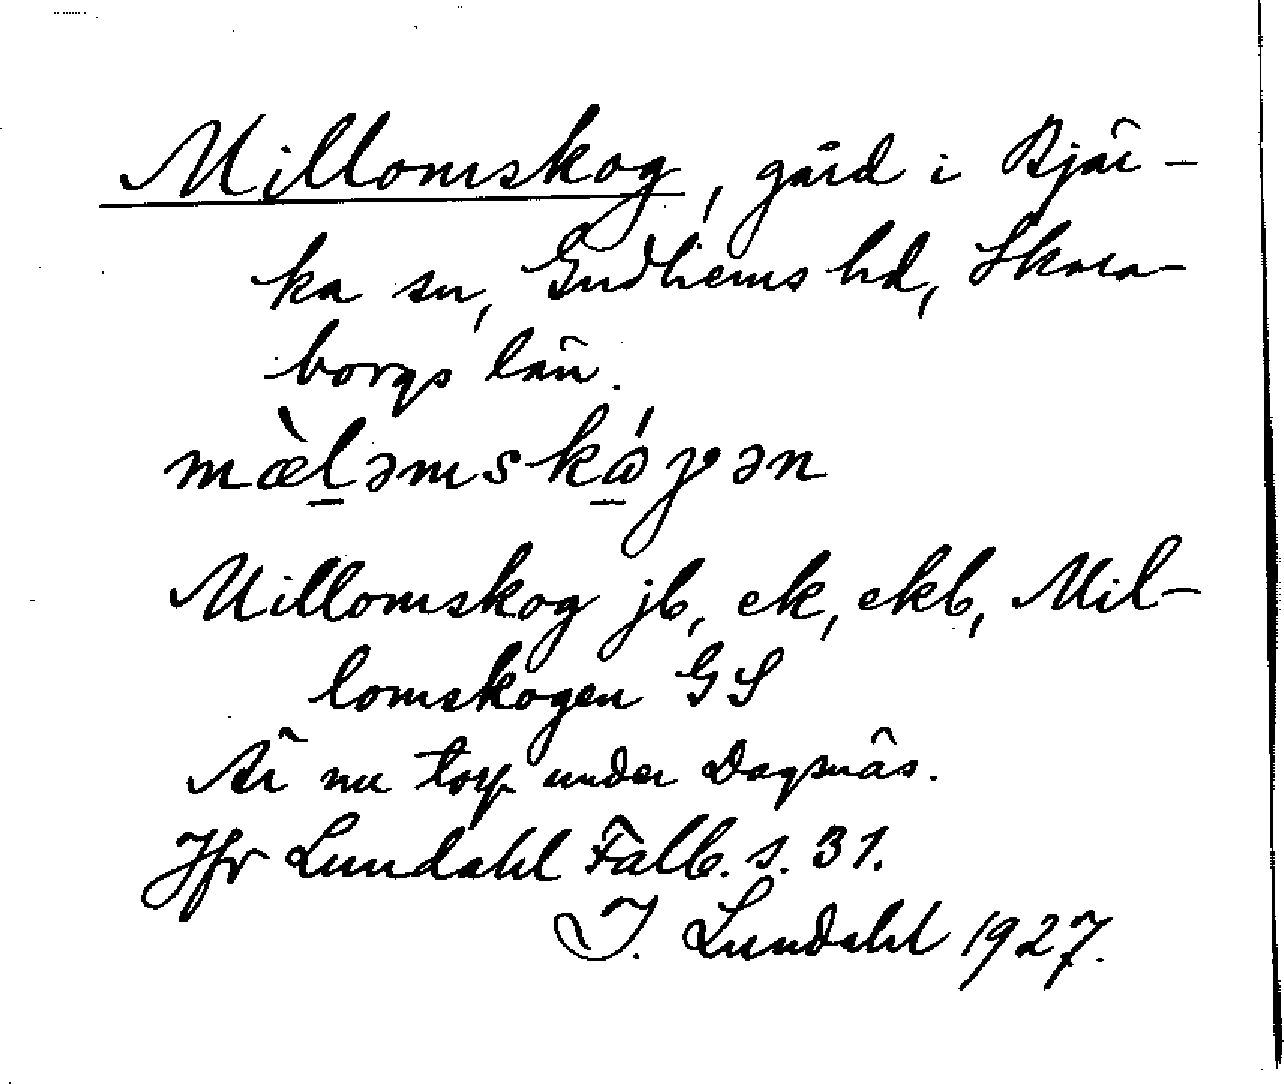 Millomskog, gård i Bjär-
ka sn, Gudhems hd, Skara-
borgs län.
mæ̀l̠əmskɷ̠́γən
Millomskog jb, ek, ekb, Mil-
lomskogen GS
Är nu torp under Dagsnäs.
Jfr Lundahl Falb. s. 31.
I. Lundahl 1927.